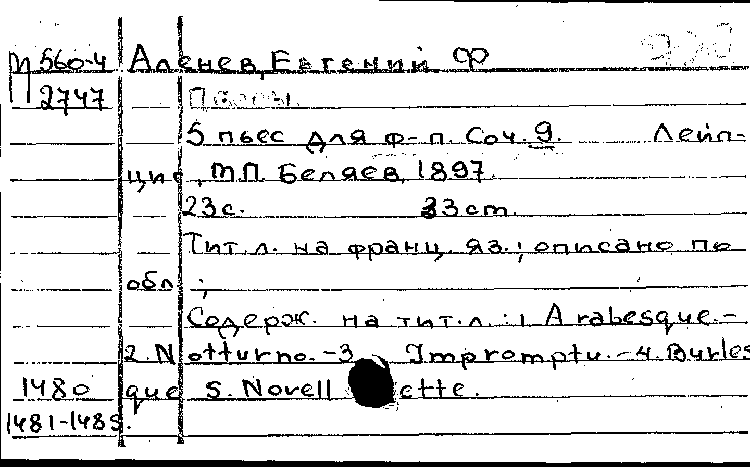 М 560-4 Аленев, Евгений Ф
2747 Пьесы.
5 пьес для ф-п. Соч. 9. Лейп-
циг, М.П. Беляев, 1897.
23с. 33cm.
Тит. л. на франц. яз.; описано по
обл.;
Содерж. на тит. л.: 1 Arabesque.-
2. Notturno.-3 Impromptu.-4. Burles
1480 que 5. Novellette.
1481-1485.